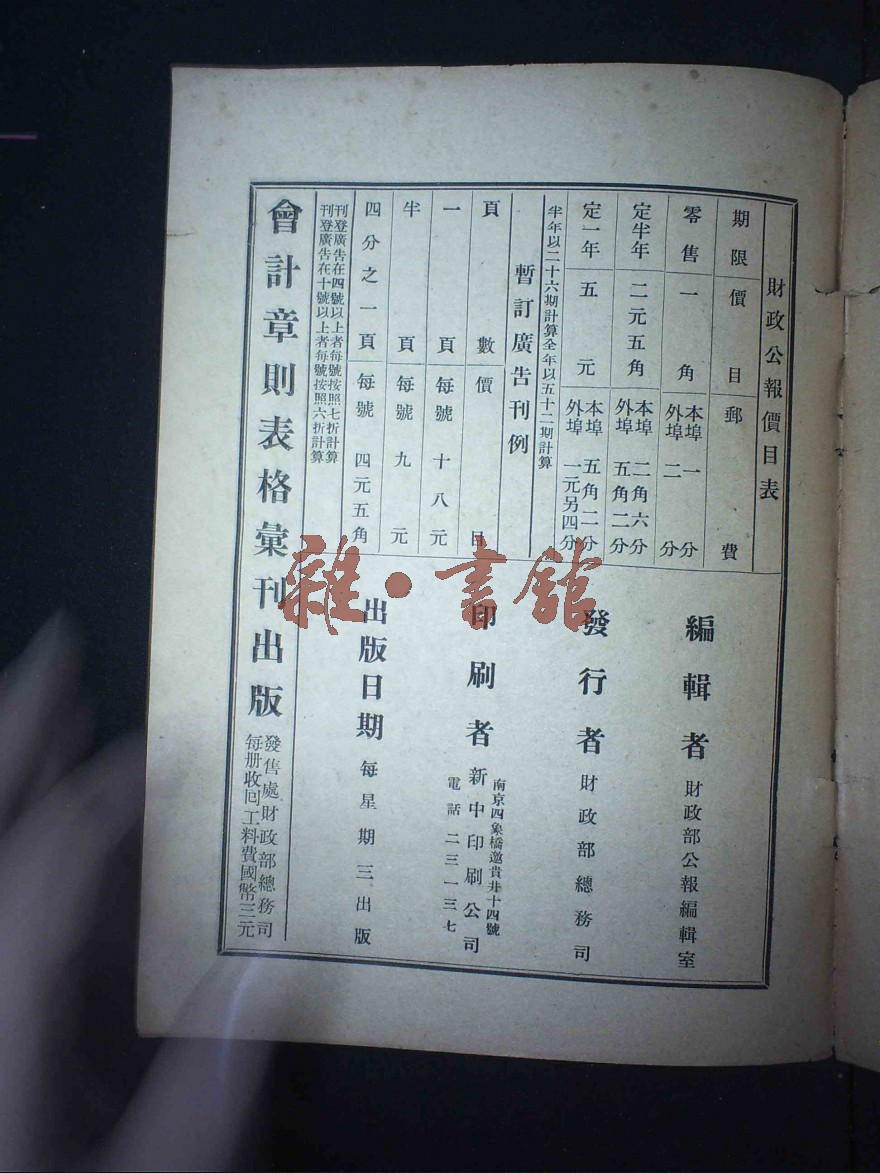 財政公報價目表
期限 價目 郵費
零售 一角 本埠 一分 外埠 二分
定半年 二元五角 本埠 二角六分 外埠 五角二分
定一年 五元 本埠 五角二分 外埠 一元另四分
半年以二十六期計算全年以五十二期計算
暫訂廣告刊例
頁數 價目
一頁 每號 十八元
半頁 每號 九元
四分之一頁 每號 四元五角
刊登廣告在四號以上者每號按照七折計算
刊登廣告在十號以上者每號按照六折計算
編輯者 財政部公報編輯室
發行者 財政部總務司
南京四象橋邀貴井十四號
印刷者 新中印刷公司
電話 二三一三七
出版日期 每星期三出版
會計章則表格彙刊出版
發售處財政部總務司
每册收回工料費國幣三元
雜·書館